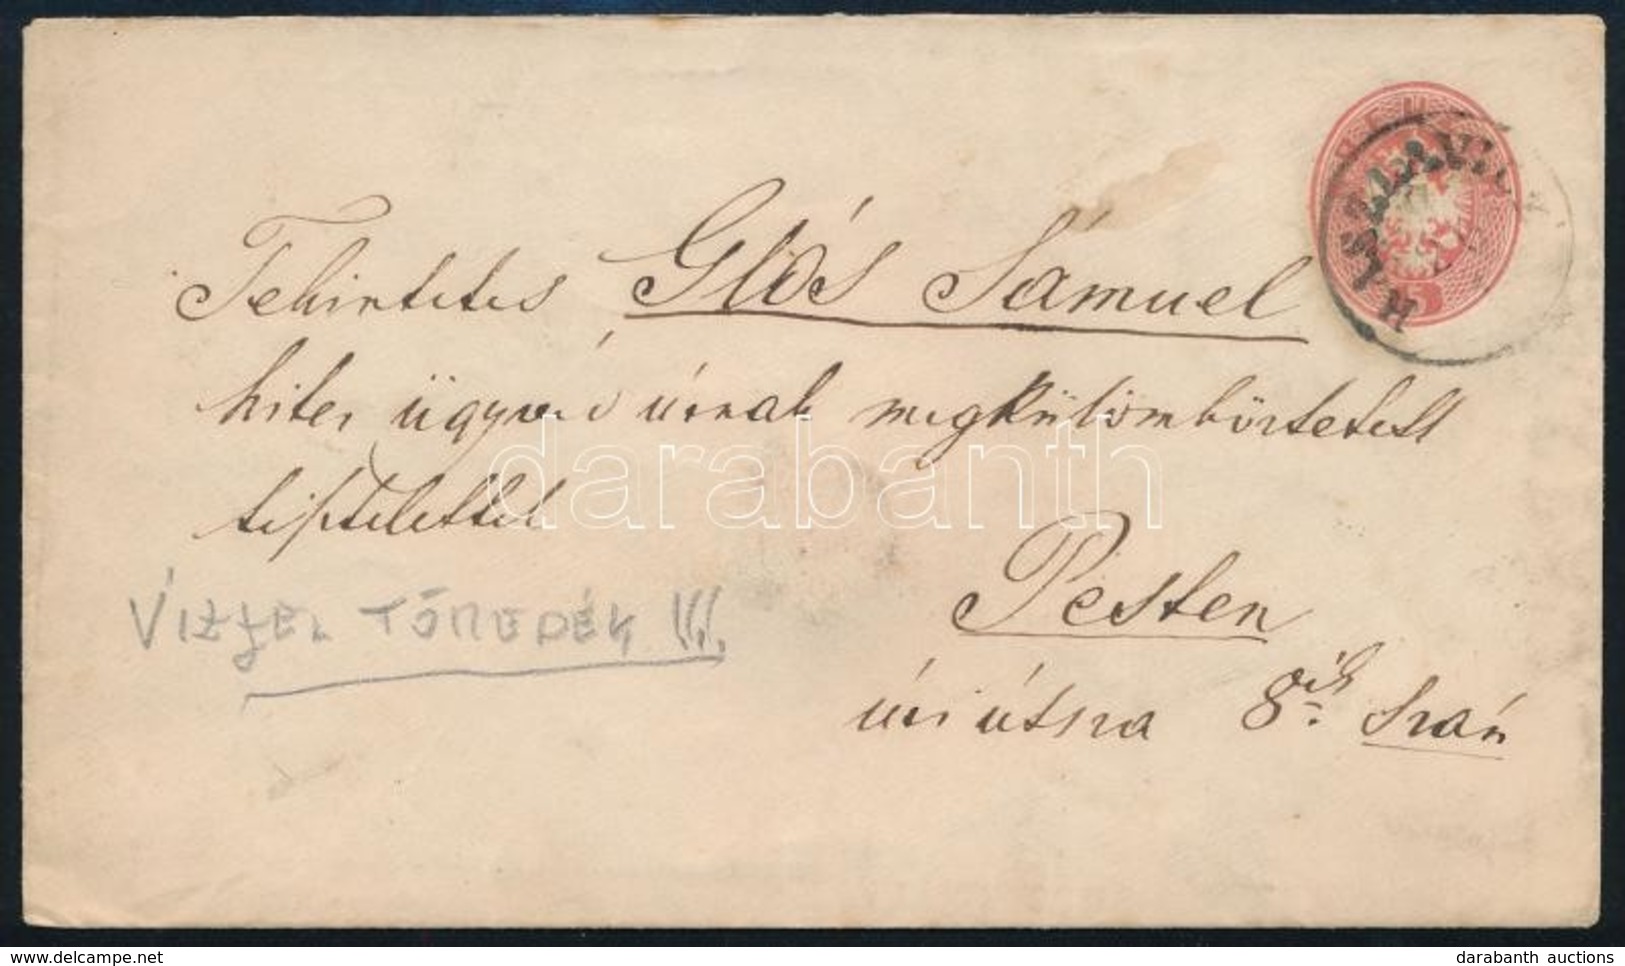 Tekintetes Glós Sámuel
hites ügyvéd úrnak megkülömböztetett
tisztelettel
Pesten
úri útsza 8ik Szám
VIZJEL TÖREDÉK !!!
darabanth
delcampe.net
darabanth auctions